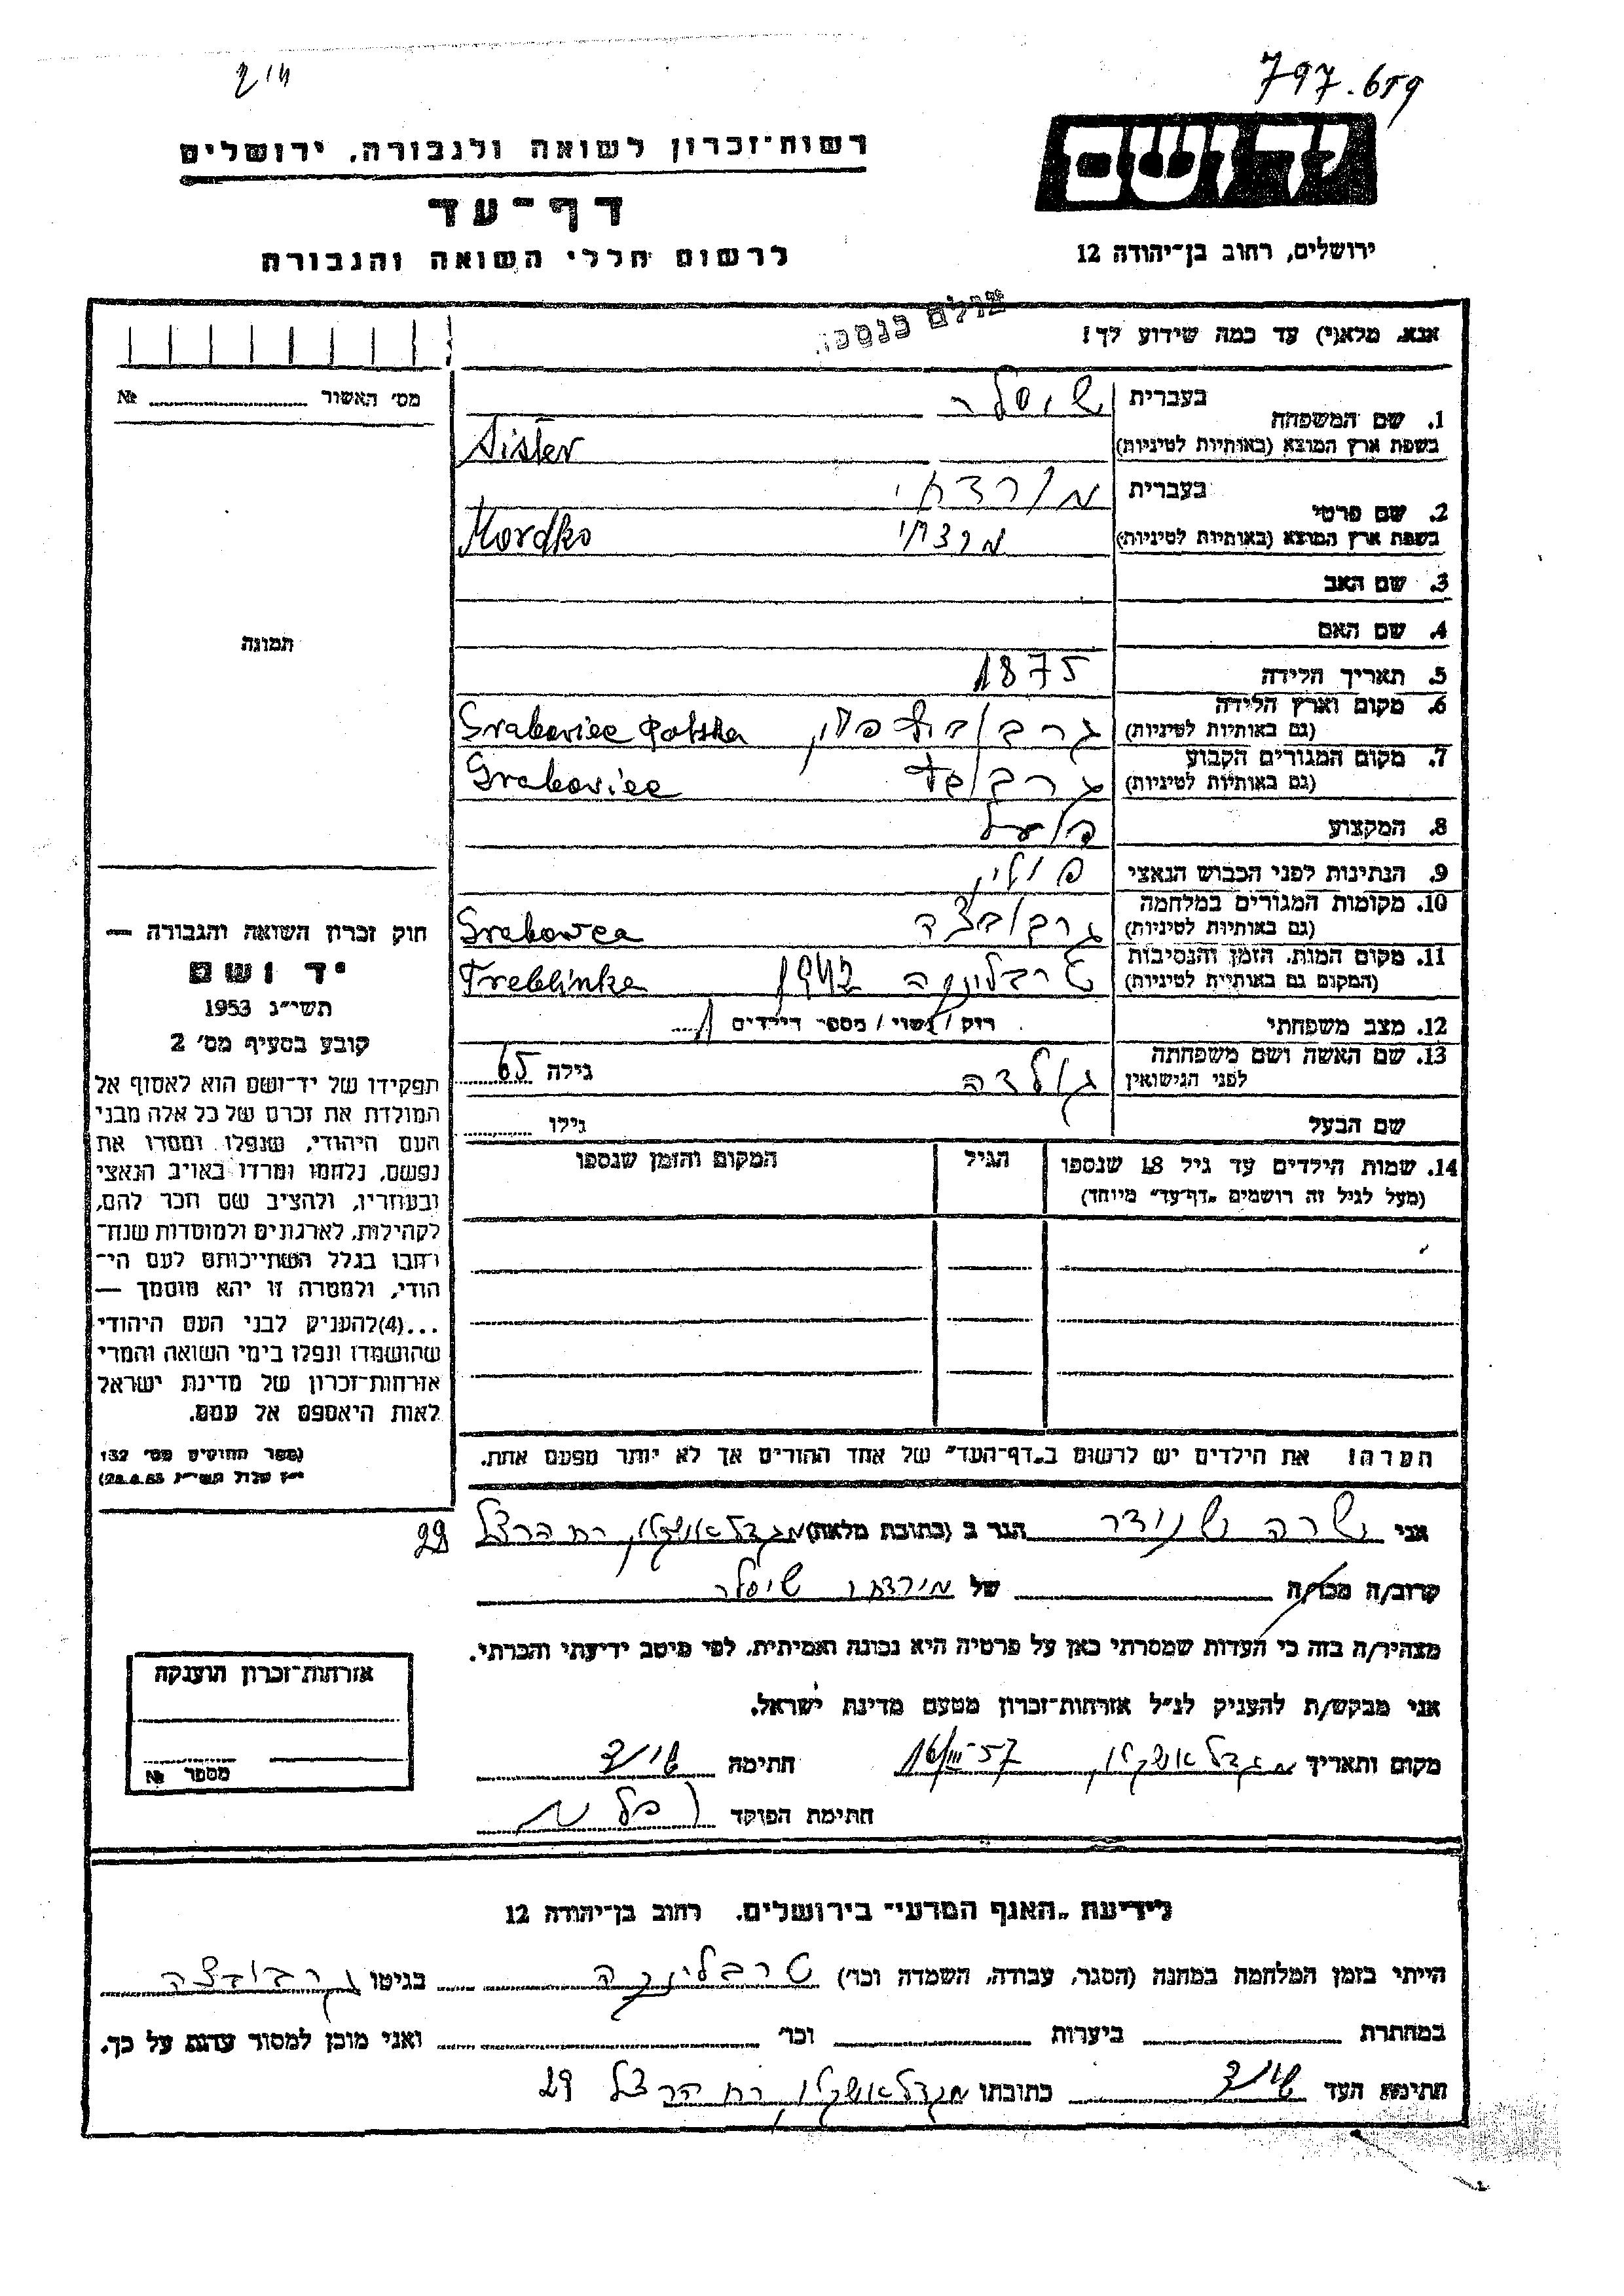 797.659
רשות־זכרון לשואה ולגבורה, ירושלים
יד ושם
דף־עד
לרשום חללי השואה והגבורה
ירושלים, רחוב בן־יהודה 12
אנא, מלא(י) עד כמה שידוע לך!
כולם נספו
מס' האשור ........ №
1. שם המשפחה בעברית שיסלר
בשפת ארץ המוצא (באותיות לטיניות) Sisler
2. שם פרטי בעברית מורדחי
בשפת ארץ המוצא (באותיות לטיניות) מרדחי Mordko
3. שם האב
4. שם האם
תמונה
5. תאריך הלידה 1875
6. מקום וארץ הלידה
(גם באותיות לטיניות) Grabowiec Polska
7. מקום המגורים הקבוע
(גם באותיות לטיניות) Grabowiec
8. המקצוע פועל
9. הנתינות לפני הכבוש הנאצי פולין
10. מקומות המגורים במלחמה
(גם באותיות לטיניות)
11. מקום המות, הזמן והנסיבות
(המקום גם באותיות לטיניות) טרבלינקה 1942 Treblinka
12. מצב משפחתי רווק / נשוי / מספר הילדים
13. שם האשה ושם משפחתה
לפני הנישואין גולדה גילה 65
שם הבעל גילו
14. שמות הילדים עד גיל 18 שנספו הגיל המקום והזמן שנספו
(מעל לגיל זה רושמים „דף־עד" מיוחד)
חוק זכרון השואה והגבורה —
יד ושם
תשי"ג 1953
קובע בסעיף מס' 2
תפקידו של יד־ושם הוא לאסוף אל
המולדת את זכרם של כל אלה מבני
העם היהודי, שנפלו ומסרו את
נפשם, נלחמו ומרדו באויב הנאצי
ובעוזריו, ולהציב שם וזכר להם,
לקהילות, לארגונים ולמוסדות שנח־
רבו בגלל השתייכותם לעם הי־
הודי, ולמטרה זו יהא מוסמך —
...(4)להעניק לבני העם היהודי
שהושמדו ונפלו בימי השואה והמרי
אזרחות־זכרון של מדינת ישראל
לאות היאספם אל עמם.
(ספר החוקים מס' 132
י"ז אלול תשי"ג 28.8.53)
הערה! את הילדים יש לרשום ב„דף־העד" של אחד ההורים אך לא יותר מפעם אחת.
אני שרה שנידר הגר ב (כתובת מלאה) מגדל אשקלון רח הרצל 29
קרוב/ה מכר/ה של מורדחי שיסלר
מצהיר/ה בזה כי העדות שמסרתי כאן על פרטיה היא נכונה ואמיתית, לפי מיטב ידיעתי והכרתי.
אני מבקש/ת להעניק לנ"ל אזרחות־זכרון מטעם מדינת ישראל.
מקום ותאריך מגדל אשקלון 16/III-57 חתימה
חתימת הפוקד
אזרחות־זכרון הוענקה
מספר №
לידיעת „האגף המדעי" בירושלים, רחוב בן־יהודה 12
הייתי בזמן המלחמה במחנה (הסגר, עבודה, השמדה וכו') טרבלינקה בגיטו
במחתרת ביערות וכו' ואני מוכן למסור עדות על כך.
חתימת העד כתובתו מגדל אשקלון רח הרצל 29